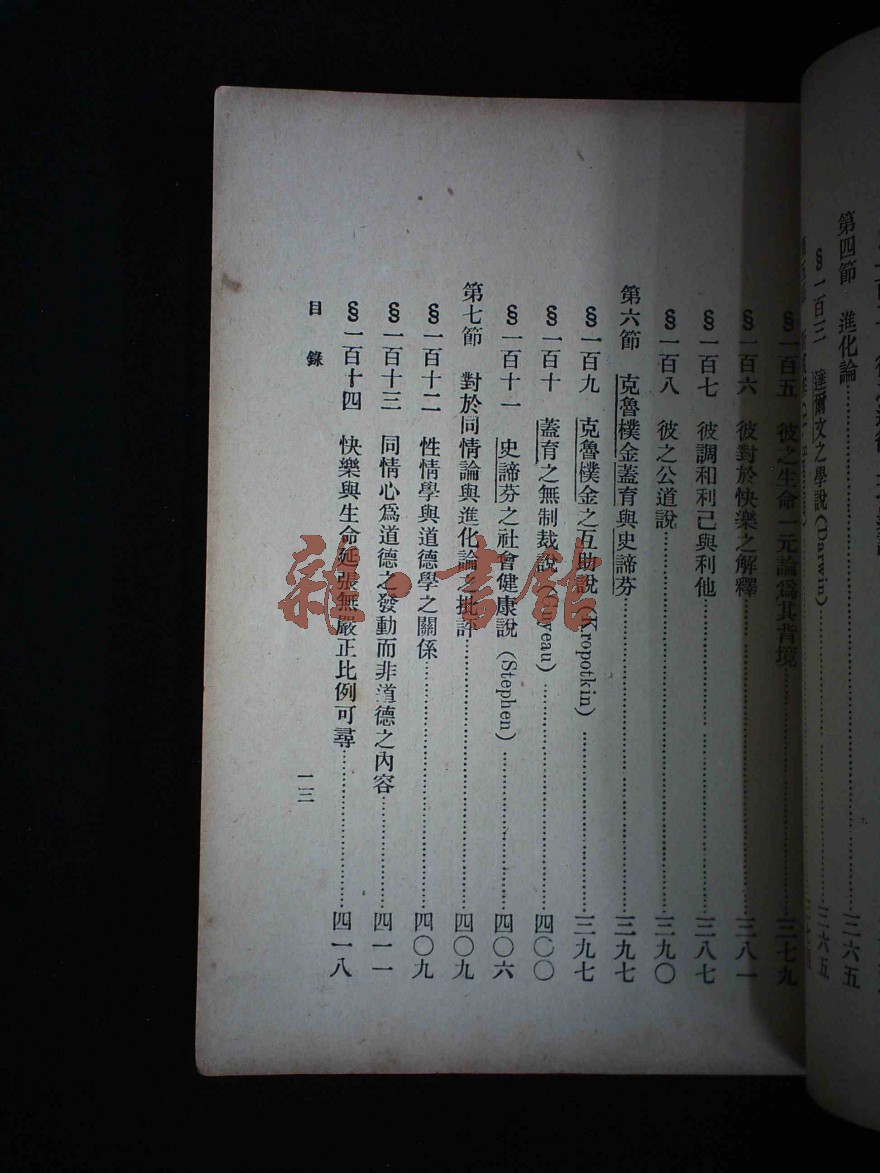 第四節 進化論……三六五
§一百三 達爾文之學說(Darwin)……三六五
§一百五 彼之生命一元論爲其背境……三七九
§一百六 彼對於快樂之解釋……三八一
§一百七 彼調和利己與利他……三八七
§一百八 彼之公道說……三九〇
第六節 克魯樸金蓋育與史諦芬……三九七
§一百九 克魯樸金之互助說(Kropotkin)……三九七
§一百十 蓋育之無制裁說……四〇〇
§一百十一 史諦芬之社會健康說(Stephen)……四〇六
第七節 對於同情論與進化論之批評……四〇九
§一百十二 性情學與道德學之關係……四〇九
§一百十三 同情心爲道德之發動而非道德之內容……四一一
§一百十四 快樂與生命延張無嚴正比例可尋……四一八
目錄
一三
雜·書館